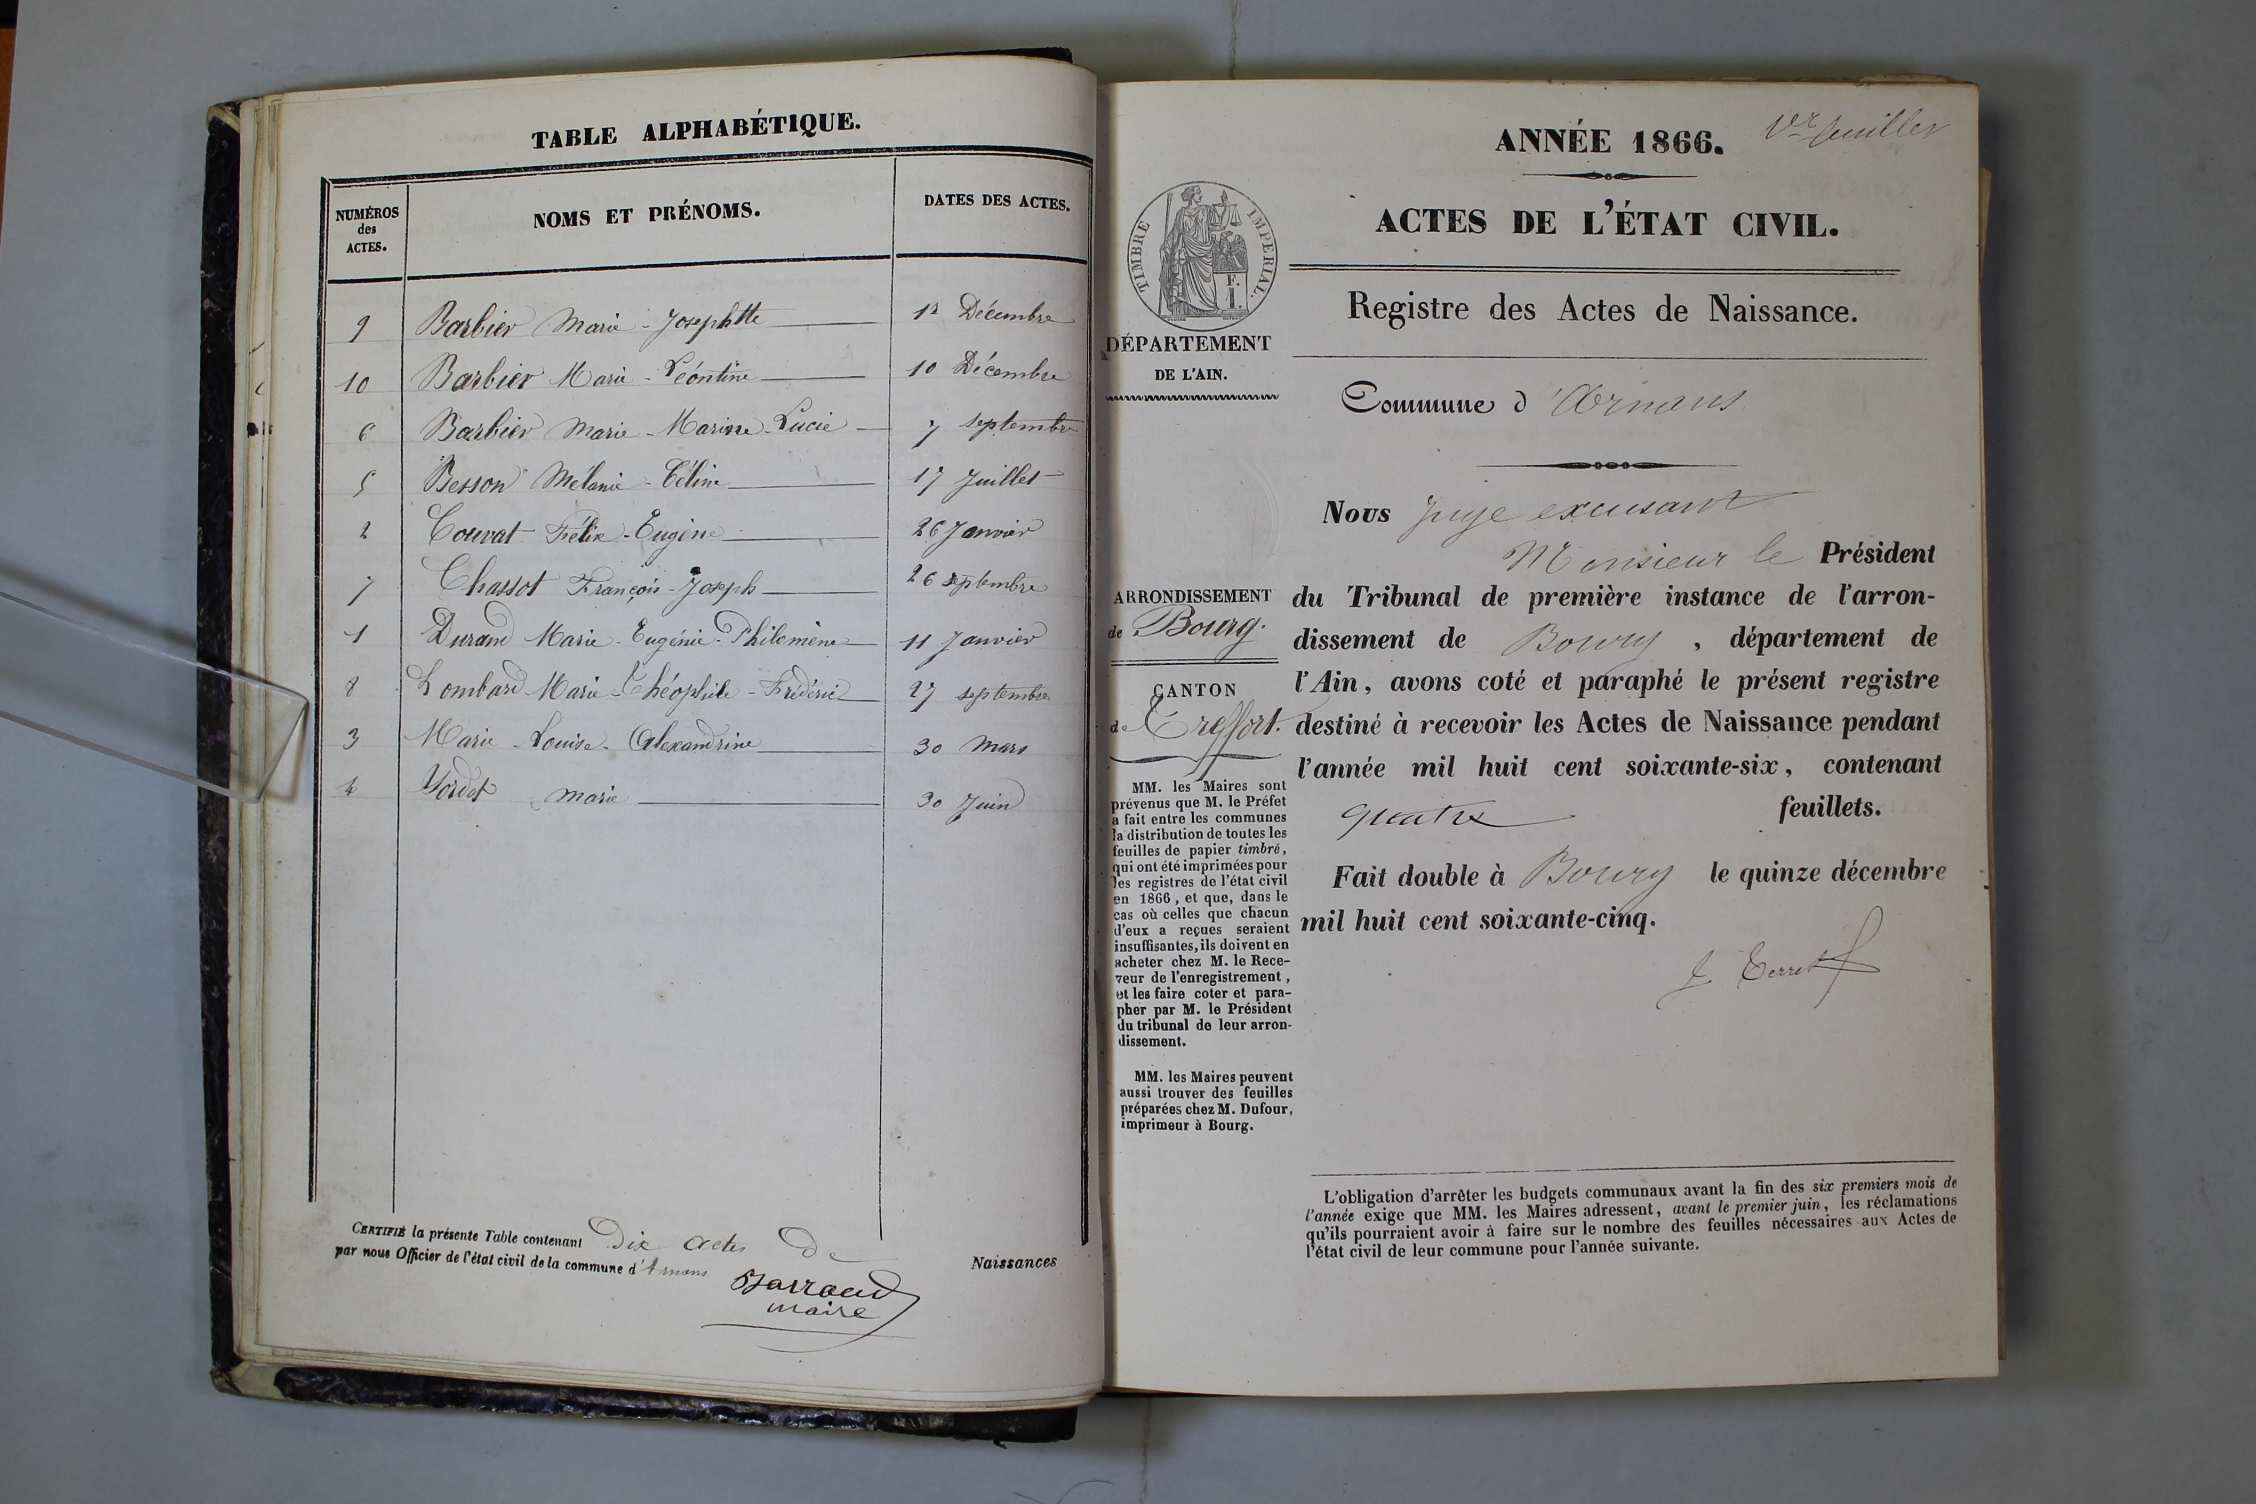 TABLE ALPHABÉTIQUE.
NUMÉROS
des
ACTES.
NOMS ET PRÉNOMS.
DATES DES ACTES.
9 Barbier Marie - Josephtte 12 Décembre
10 Barbier Marie - Léontine 10 Décembre
6 Barbier Marie - Marinne - Lucie 7 septembre
5 Besson Mélanie - Céline 17 Juillet
2 Couvat Félix - Eugène 26 Janvier
7 Chassot François - Joseph 26 septembre
1 Durand Marie - Eugénie - Philomène 11 Janvier
8 Lombard Marie - Théophile - Frédéric 27 septembre
3 Marie - Louise - Alexandrine 30 Mars
4 Marie 30 Juin
CERTIFIÉ la présente Table contenant Dix actes De
Naissances
par nous Officier de l'état civil de la commune d'Arnans
Barraud
maire
1er feuillet
ANNÉE 1866.
ACTES DE L'ÉTAT CIVIL.
TIMBRE IMPERIAL.
F.
1.
Registre des Actes de Naissance.
DÉPARTEMENT
DE L'AIN.
Commune d'Arnans
ARRONDISSEMENT
de Bourg.
CANTON
de Treffort.
MM. les Maires sont
prévenus que M. le Préfet
a fait entre les communes
la distribution de toutes les
feuilles de papier timbré,
qui ont été imprimées pour
les registres de l'état civil
en 1866, et que, dans le
cas où celles que chacun
d'eux a reçues seraient
insuffisantes, ils doivent en
acheter chez M. le Rece-
veur de l'enregistrement,
et les faire coter et para-
pher par M. le Président
du tribunal de leur arron-
dissement.
MM. les Maires peuvent
aussi trouver des feuilles
préparées chez M. Dufour,
imprimeur à Bourg.
Nous Juge excusant
Monsieur le Président
du Tribunal de première instance de l'arron-
dissement de Bourg, département de
l'Ain, avons coté et paraphé le présent registre
destiné à recevoir les Actes de Naissance pendant
l'année mil huit cent soixante-six, contenant
quatre feuillets.
Fait double à Bourg le quinze décembre
mil huit cent soixante-cinq.
L'obligation d'arrêter les budgets communaux avant la fin des six premiers mois de
l'année exige que MM. les Maires adressent, avant le premier juin, les réclamations
qu'ils pourraient avoir à faire sur le nombre des feuilles nécessaires aux Actes de
l'état civil de leur commune pour l'année suivante.